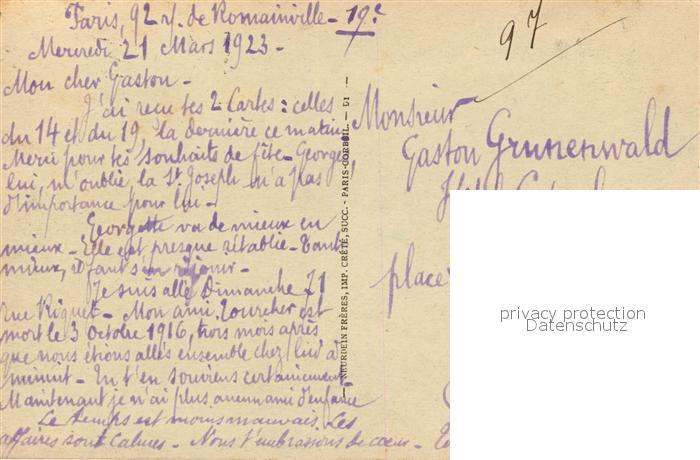 Paris, 92 r. de Romainville - 19e
Mercredi 21 Mars 1923 -
Mon cher Gaston -
J'ai reçu tes 2 Cartes : celles
du 14 et du 19, la dernière ce matin
Merci pour tes souhaits de fête - Georges,
lui, m'oublie, la St Joseph n'a pas
d'importance pour lui -
Georgette va de mieux en
mieux - Elle est presque rétablie - Tant
mieux, il faut s'en réjouir -
Je suis allé Dimanche 71
rue Riquet - Mon ami Tourcher est
mort le 3 Octobre 1916, trois mois après
que nous étions allés ensemble chez lui à
minuit - Tu t'en souviens certainement -
Maintenant je n'ai plus aucun ami d'enfance
Le temps est moins mauvais. Les
affaires sont calmes - Nous t'embrassons de cœur -
NEURDEIN FRÈRES, IMP. CRÉTÉ, SUCC. - PARIS-CORBEIL. -
97
Monsieur
Gaston Grunenwald
place
privacy protection
Datenschutz